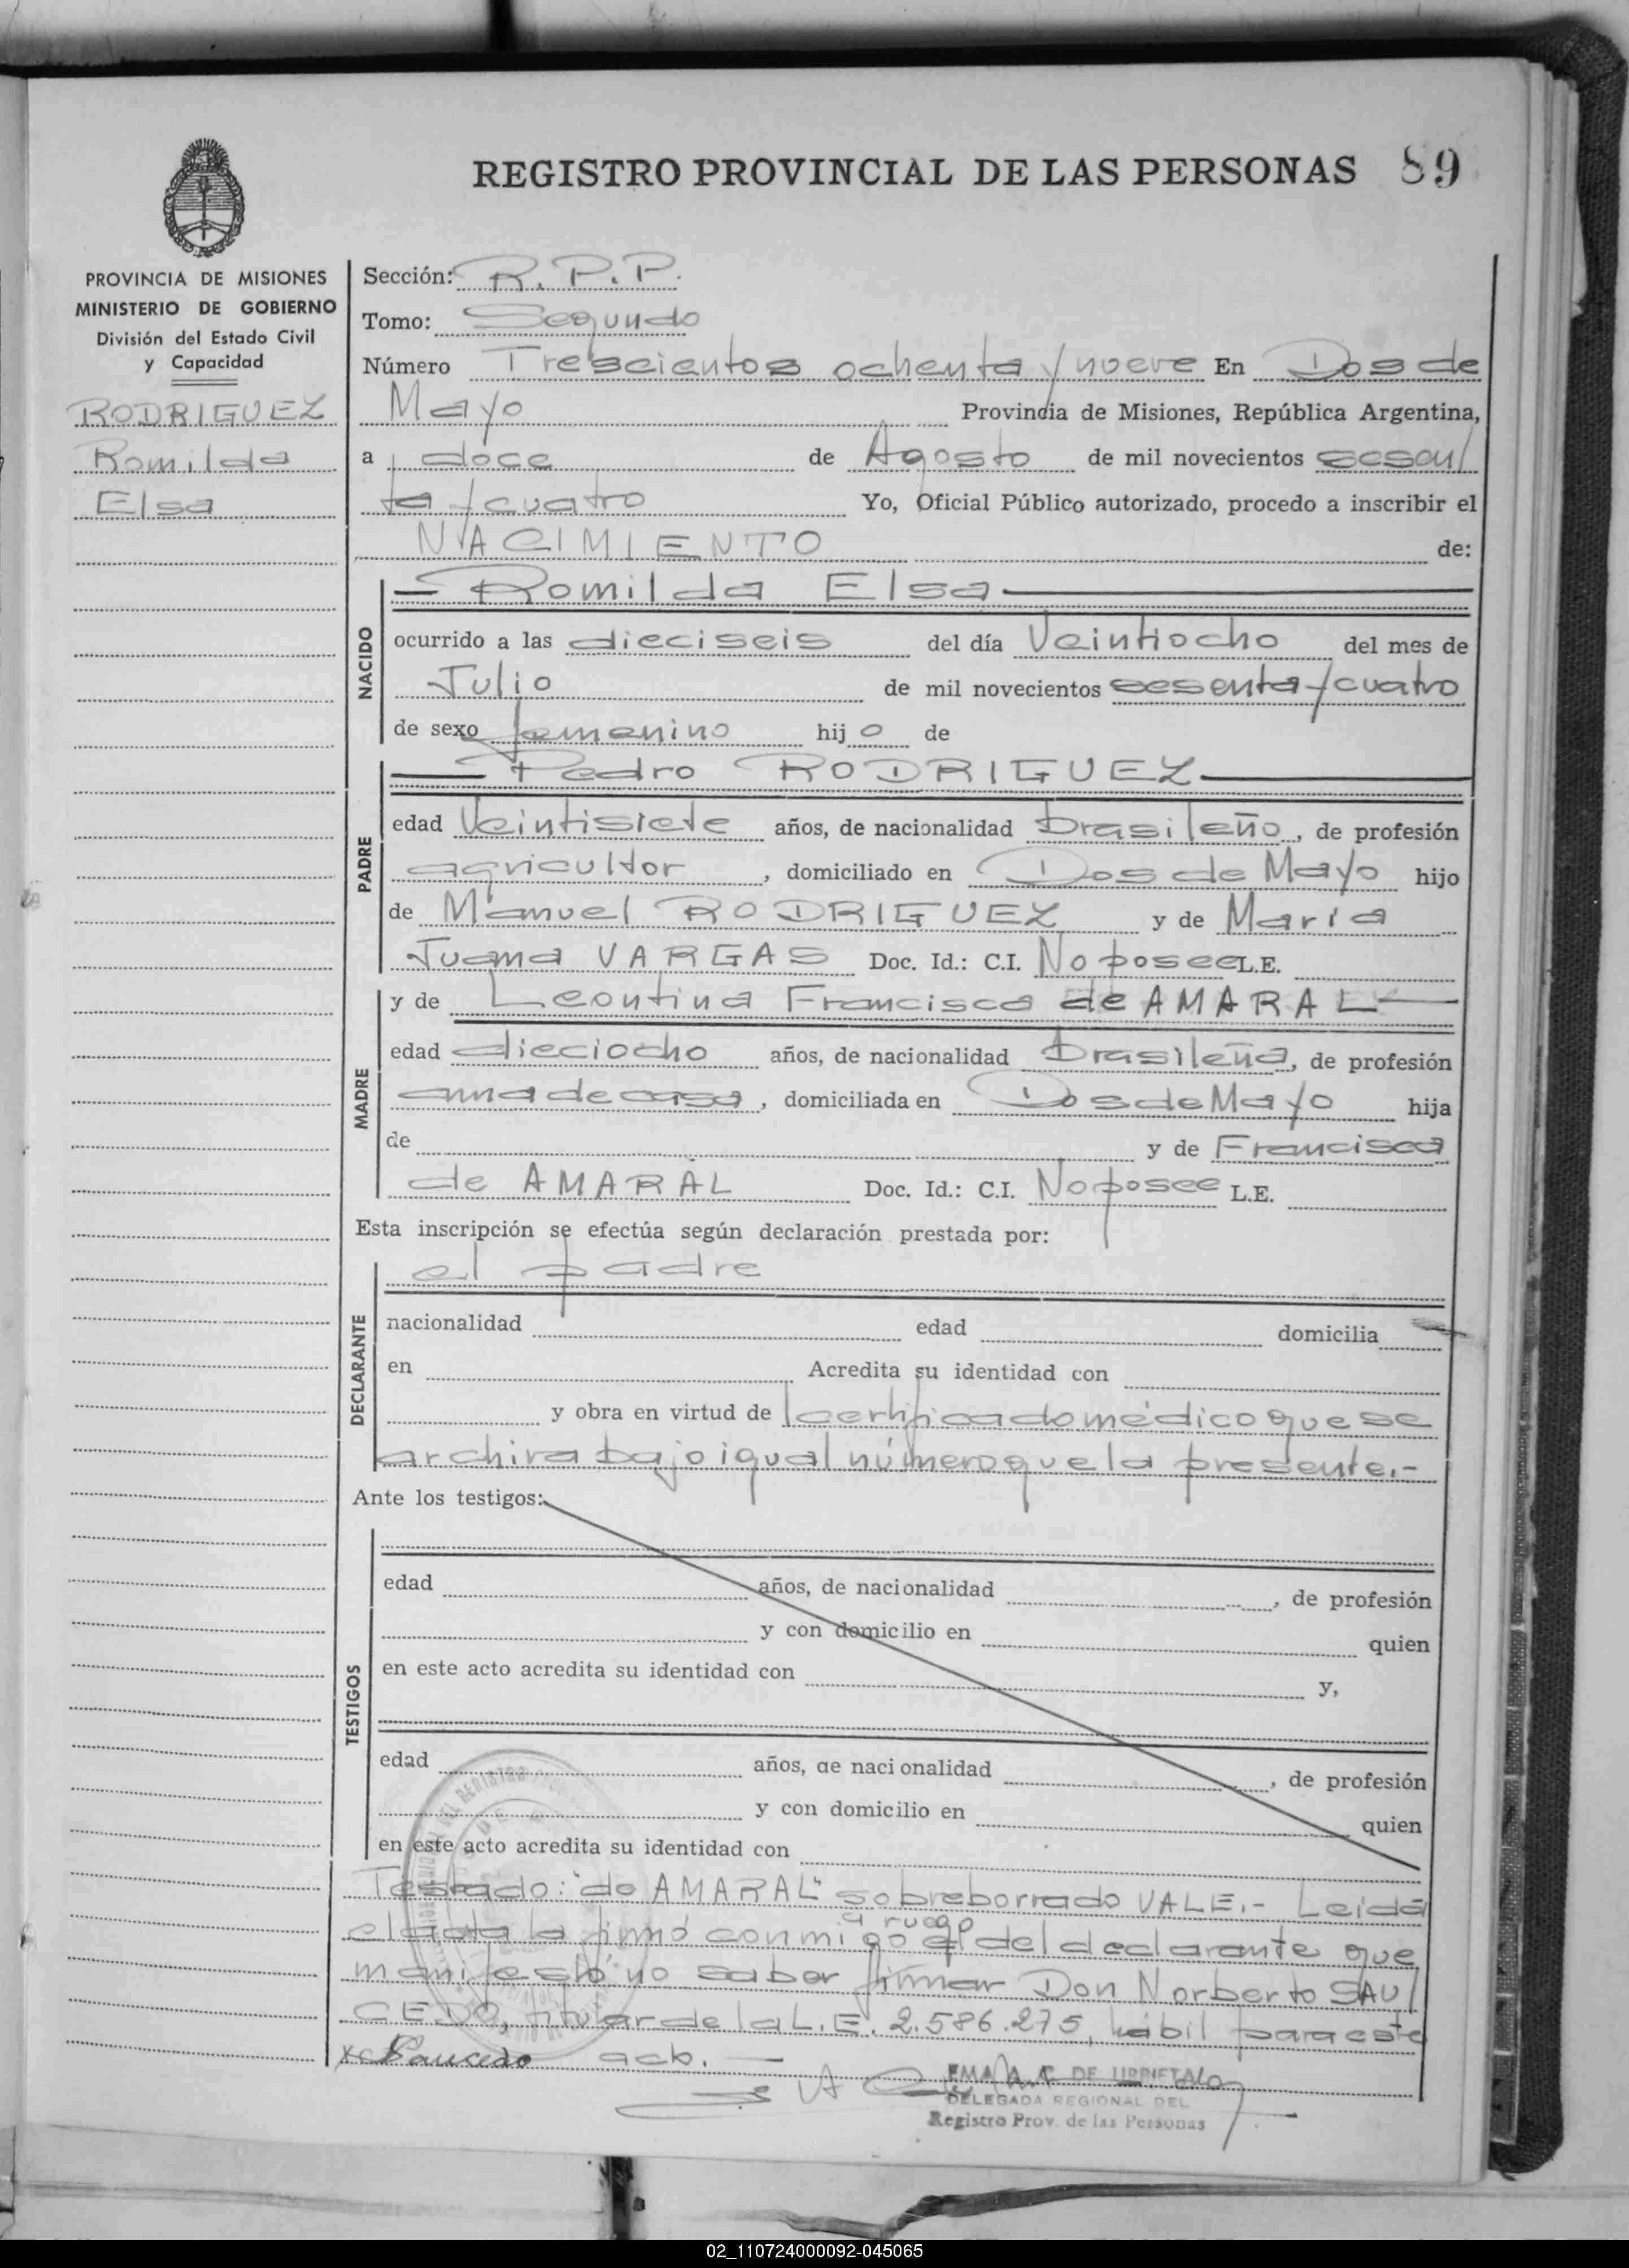 REGISTRO PROVINCIAL DE LAS PERSONAS 89
PROVINCIA DE MISIONES
MINISTERIO DE GOBIERNO
División del Estado Civil
y Capacidad
RODRIGUEZ
Romilda
Elsa
Sección: R.P.P.
Tomo: Segundo
Número Trescientos ochenta y nueve En Dos de
Mayo Provincia de Misiones, República Argentina,
a doce de Agosto de mil novecientos sesen/
ta y cuatro Yo, Oficial Público autorizado, procedo a inscribir el
NACIMIENTO de:
NACIDO
— Romilda Elsa —
ocurrido a las dieciseis del día Veintiocho del mes de
Julio de mil novecientos sesenta y cuatro
de sexo femenino hijo de
PADRE
— Pedro RODRIGUEZ —
edad Veintisiete años, de nacionalidad brasileño, de profesión
agricultor, domiciliado en Dos de Mayo hijo
de Manuel RODRIGUEZ y de María
Juana VARGAS Doc. Id.: C.I. No posee L.E.
MADRE
y de Leontina Francisca de AMARAL —
edad dieciocho años, de nacionalidad brasileña, de profesión
ama de casa, domiciliada en Dos de Mayo hija
de y de Francisca
de AMARAL Doc. Id.: C.I. No posee L.E.
Esta inscripción se efectúa según declaración prestada por:
DECLARANTE
el padre
nacionalidad edad domicilia
en Acredita su identidad con
y obra en virtud de certificado médico que se
archiva bajo igual número que la presente.-
Ante los testigos:
TESTIGOS
edad años, de nacionalidad , de profesión
y con domicilio en quien
en este acto acredita su identidad con y,
edad años, de nacionalidad , de profesión
y con domicilio en quien
en este acto acredita su identidad con
Testado: "de AMARAL" sobreborrado VALE.- Leída
el acta la firmó conmigo a ruego del declarante que
manifestó no saber firmar Don Norberto SAU/
CEDO, titular de la L.E. 2.586.275, hábil para este
Saucedo acto. —
EMA A. C. DE URRIETA
DELEGADA REGIONAL DEL
Registro Prov. de las Personas
02_110724000092-045065